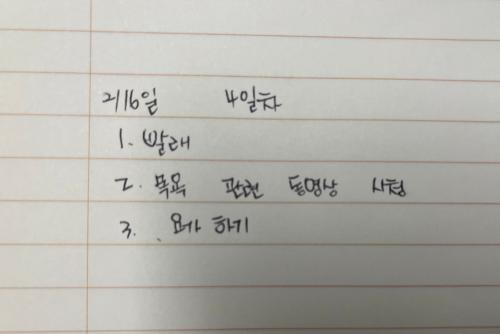 2/16일 4일차
1. 빨래
2. 목욕 관련 동영상 시청
3. 요가 하기